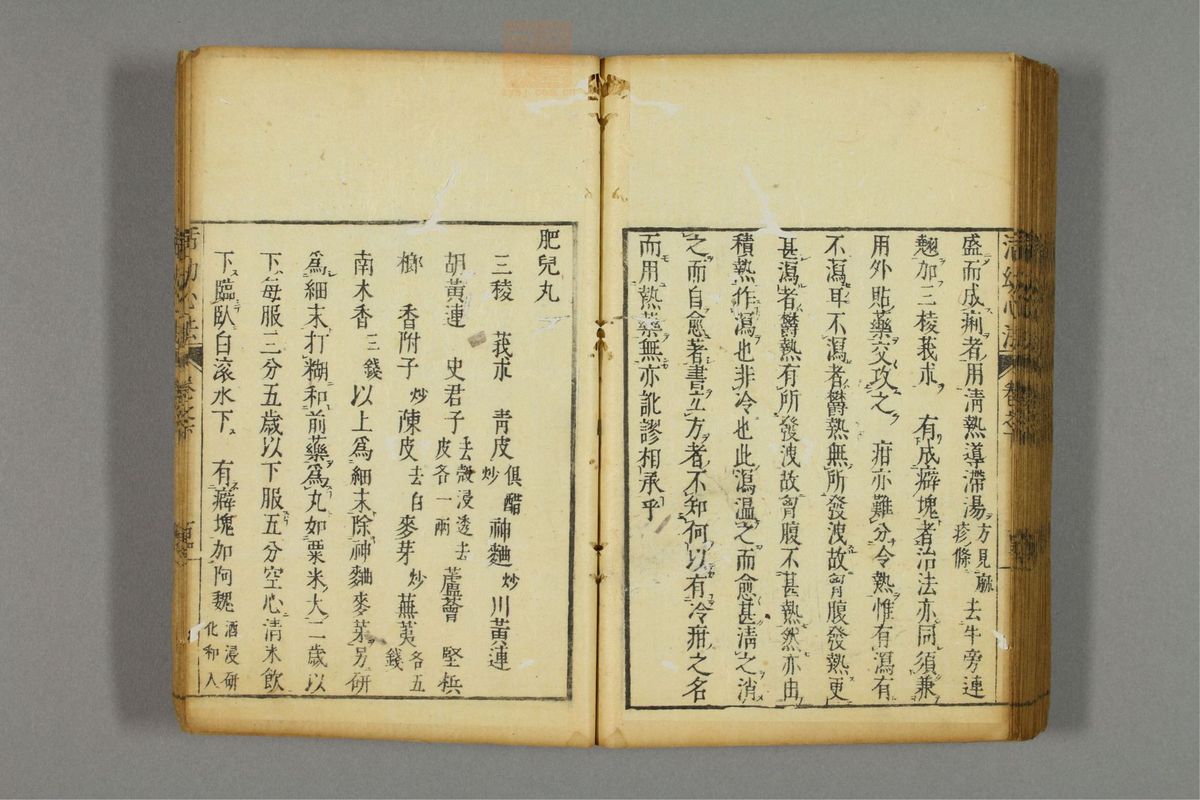 盛而成痢者用淸熱導滯湯方見麻疹條去牛旁連
翹加三棱莪朮　有成癖塊者治法亦同須兼
用外貼藥交攻之　疳亦難分令熱惟有瀉有
不瀉耳不瀉者欝熱無所發洩故胷腹發熱更
甚瀉者欝熱有所發洩故胷腹不甚熱然亦由
積熱作瀉也非冷也此瀉溫之而愈甚淸之消
之而自愈著書立方者不知何以有冷疳之名
而用熱藥無亦訛謬相承乎
肥兒丸
三稜　莪朮　靑皮俱醋炒神麯炒川黃連
胡黃連　史君子去殼浸透去皮各一兩蘆薈　堅檳
榔　香附子炒陳皮去白麥芽炒蕪荑各五錢
南木香三錢以上爲細末除神麯麥芽另硏
爲細末打糊和前藥爲丸如粟米大二歲以
下每服三分五歲以下服五分空心淸米飮
下臨臥白滾水下　有癖塊加阿魏酒浸硏化和入